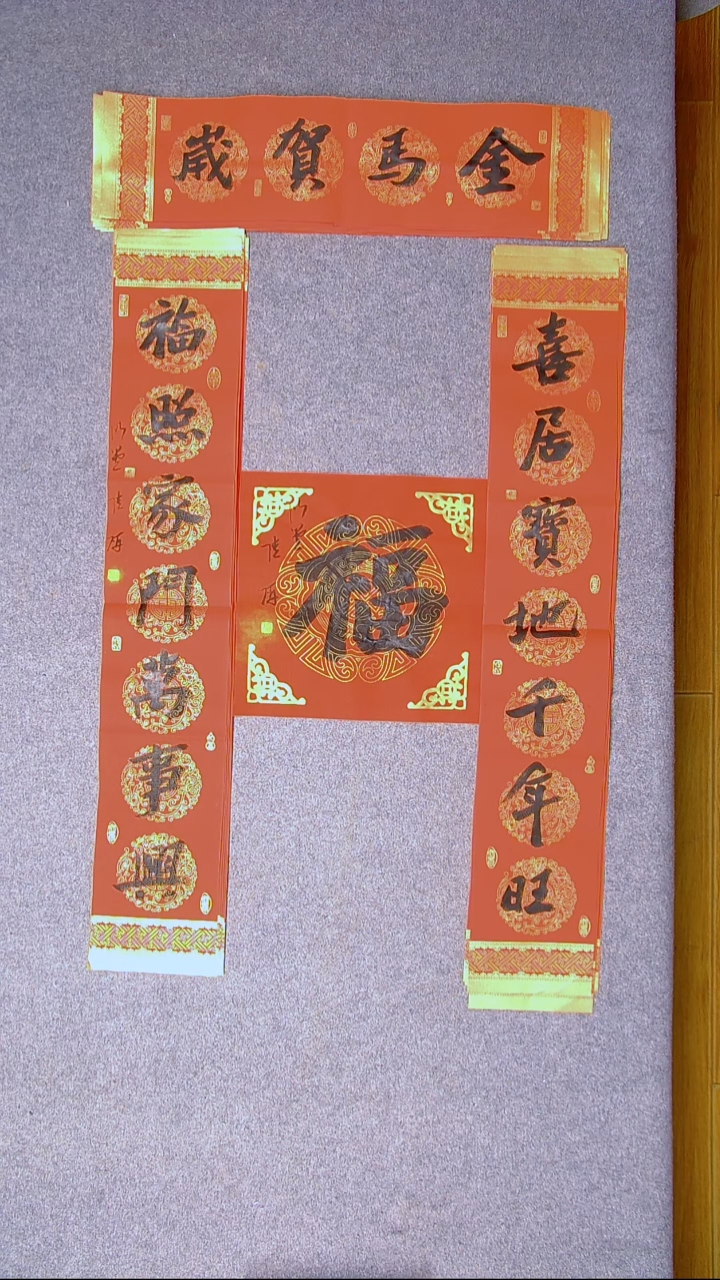 金馬賀歲
喜居寶地千年旺
福照家門萬事興
福